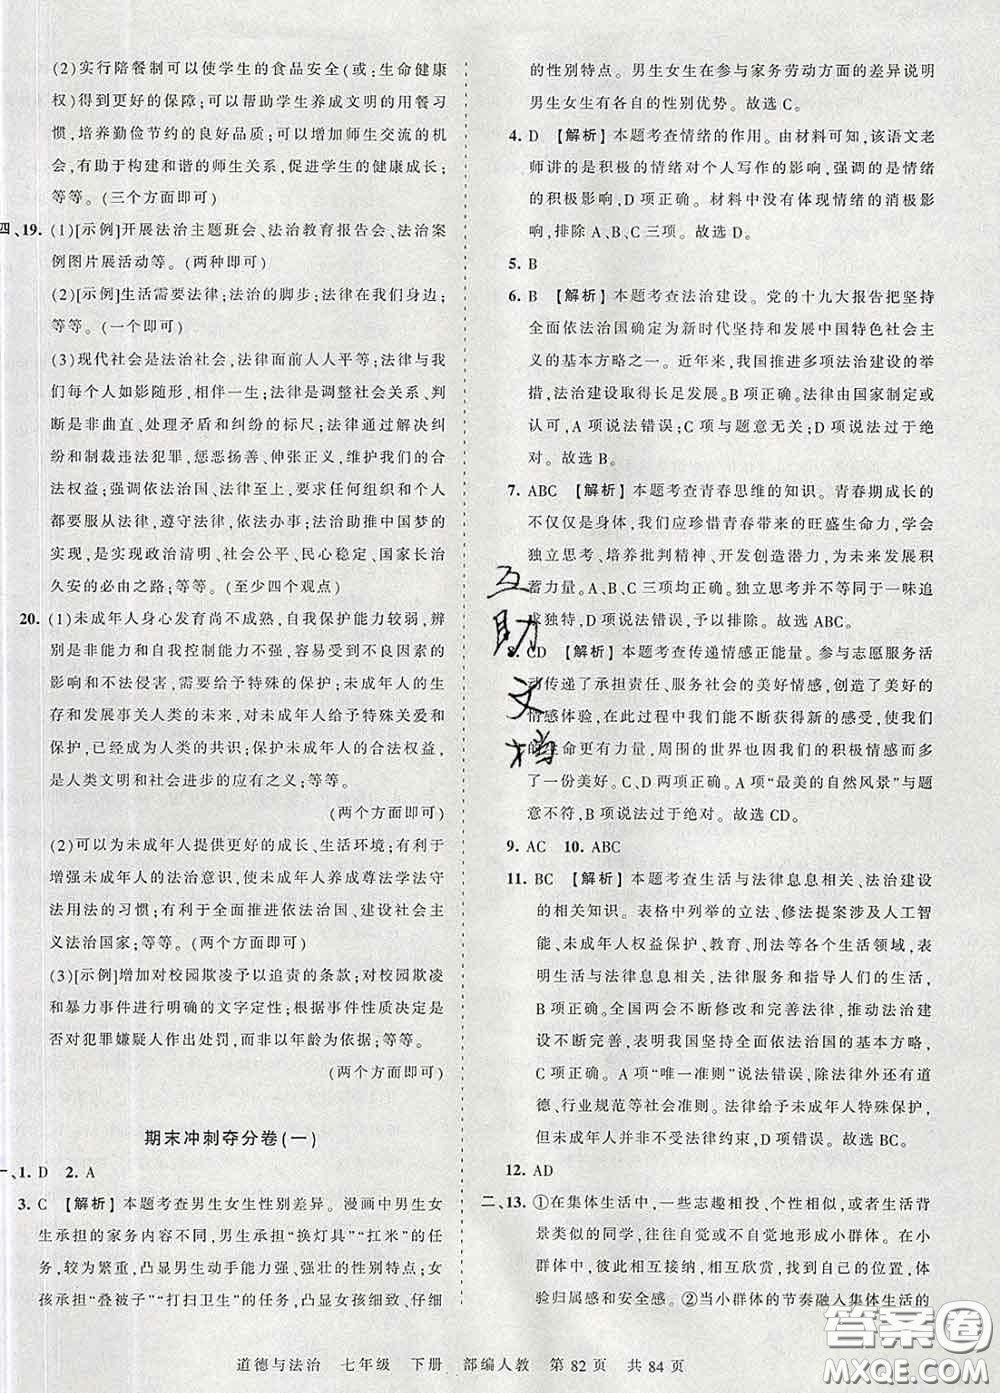 (2)实行陪餐制可以使学生的食品安全(或:生命健康
权)得到更好的保障;可以帮助学生养成文明的用餐习
惯,培养勤俭节约的良好品质;可以增加师生交流的机
会,有助于构建和谐的师生关系,促进学生的健康成长;
等等。(三个方面即可)
四、19. (1)[示例]开展法治主题班会、法治教育报告会、法治案
例图片展活动等。(两种即可)
(2)[示例]生活需要法律;法治的脚步;法律在我们身边;
等等。(一个即可)
(3)现代社会是法治社会,法律面前人人平等;法律与我
们每个人如影随形,相伴一生;法律是调整社会关系、判
断是非曲直、处理矛盾和纠纷的标尺;法律通过解决纠
纷和制裁违法犯罪,惩恶扬善、伸张正义,维护我们的合
法权益;强调依法治国、法律至上,要求任何组织和个人
都要服从法律,遵守法律,依法办事;法治助推中国梦的
实现,是实现政治清明、社会公平、民心稳定、国家长治
久安的必由之路;等等。(至少四个观点)
20. (1)未成年人身心发育尚不成熟,自我保护能力较弱,辨
别是非能力和自我控制能力不强,容易受到不良因素的
影响和不法侵害,需要给予特殊的保护;未成年人的生存
和发展事关人类的未来,对未成年人给予特殊关爱和
保护,已经成为人类的共识;保护未成年人的合法权益,
是人类文明和社会进步的应有之义;等等。
(两个方面即可)
(2)可以为未成年人提供更好的成长、生活环境;有利于
增强未成年人的法治意识,使未成年人养成尊法学法守
法用法的习惯;有利于全面推进依法治国、建设社会主
义法治国家;等等。(两个方面即可)
(3)[示例]增加对校园欺凌予以追责的条款;对校园欺凌
和暴力事件进行明确的文字定性;根据事件性质决定是
否对犯罪嫌疑人作出处罚,而非以年龄为依据;等等。
(两个方面即可)
期末冲刺夺分卷(一)
一、1. D 2. A
3. C [解析]本题考查男生女生性别差异。漫画中男生女
生承担的家务内容不同,男生承担“换灯具”“扛米”的任
务,较为繁重,凸显男生动手能力强、强壮的性别特点;女
孩承担“叠被子”“打扫卫生”的任务,凸显女孩细致、仔细
的性别特点。男生女生在参与家务劳动方面的差异说明
男生女生有各自的性别优势。故选C。
4. D [解析]本题考查情绪的作用。由材料可知,该语文老
师讲的是积极的情绪对个人写作的影响,强调的是情绪
的积极影响,D项正确。材料中没有体现情绪的消极影
响,排除A、B、C三项。故选D。
5. B
6. B [解析]本题考查法治建设。党的十九大报告把坚持
全面依法治国确定为新时代坚持和发展中国特色社会主
义的基本方略之一。近年来,我国推进多项法治建设的举
措,法治建设取得长足发展。B项正确。法律由国家制定或
认可,A项说法错误;C项与题意无关;D项说法过于绝
对。故选B。
7. ABC [解析]本题考查青春思维的知识。青春期成长的
不仅仅是身体,我们应珍惜青春带来的旺盛生命力,学会
独立思考、培养批判精神、开发创造潜力,为未来发展积
蓄力量。A、B、C三项均正确。独立思考并不等于一味追
求独特,D项说法错误,予以排除。故选ABC。
CD [解析]本题考查传递情感正能量。参与志愿服务活
动传递了承担责任、服务社会的美好情感,创造了美好的
情感体验,在此过程中我们能不断获得新的感受,使我们
的生命更有力量,周围的世界也因我们的积极情感而多
了一份美好。C、D两项正确。A项“最美的自然风景”与题
意不符,B项说法过于绝对。故选CD。
9. AC 10. ABC
11. BC [解析]本题考查生活与法律息息相关、法治建设
的相关知识。表格中列举的立法、修法提案涉及人工智
能、未成年人权益保护、教育、刑法等各个生活领域,表
明生活与法律息息相关,法律服务和指导人们的生活,
B项正确。全国两会不断修改和完善法律,推动法治建
设不断完善,表明我国坚持全面依法治国的基本方略,
C项正确。A项“唯一准则”说法错误,除法律外还有道
德、行业规范等社会准则。法律给予未成年人特殊保护,
但并非未成年人不受法律约束,D项错误。故选BC。
12. AD
二、13. ①在集体生活中,一些志趣相投、个性相似,或者生活背
景类似的同学,往往自觉或者不自觉地形成小群体。在小
群体中,彼此相互接纳,相互欣赏,找到自己的位置,体
验归属感和安全感。②当小群体的节奏融入集体生活的
互助文档
答案圈
MXQE.COM
道德与法治 七年级 下册 部编人教 第82页 共84页